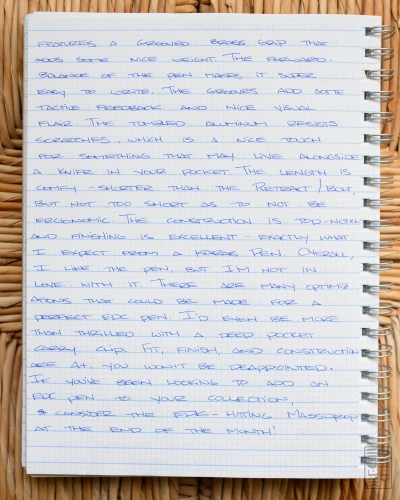 FEATURES A GROOVED BRASS GRIP THAT
ADDS SOME NICE WEIGHT. THE FORWARD-
BALANCE OF THE PEN MAKES IT SUPER
EASY TO WRITE. THE GROOVES ADD SOME
TACTILE FEEDBACK AND NICE VISUAL
FLAIR. THE TUMBLED ALUMINUM RESISTS
SCRATCHES, WHICH IS A NICE TOUCH
FOR SOMETHING THAT MAY LIVE ALONGSIDE
A KNIFE IN YOUR POCKET. THE LENGTH IS
COMFY - SHORTER THAN THE RETRAKT/BOLT,
BUT NOT TOO SHORT AS TO NOT BE
ERGONOMIC. THE CONSTRUCTION IS TOP-NOTCH
AND FINISHING IS EXCELLENT - EXACTLY WHAT
I EXPECT FROM A KARAS PEN. OVERALL,
I LIKE THE PEN, BUT I'M NOT IN
LOVE WITH IT. THERE ARE MANY OPTIMIZ
ATIONS THAT COULD BE MADE FOR A
PERFECT EDC PEN. I'D EVEN BE MORE
THAN THRILLED WITH A DEEP POCKET
CARRY CLIP. FIT, FINISH, AND CONSTRUCTION
ARE A+. YOU WON'T BE DISAPPOINTED.
IF YOU'VE BEEN LOOKING TO ADD AN
EDC PEN TO YOUR COLLECTION,
CONSIDER THE EDK - HITTING MASSDROP
AT THE END OF THE MONTH!